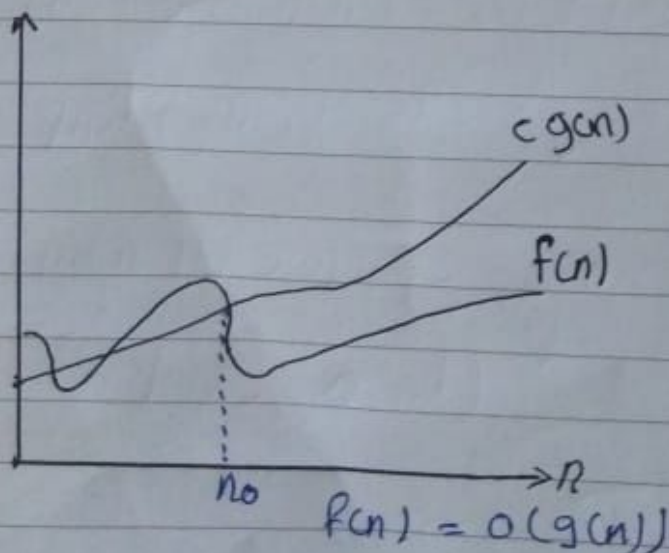 c g(n)
f(n)
n₀
n
f(n) = O(g(n))